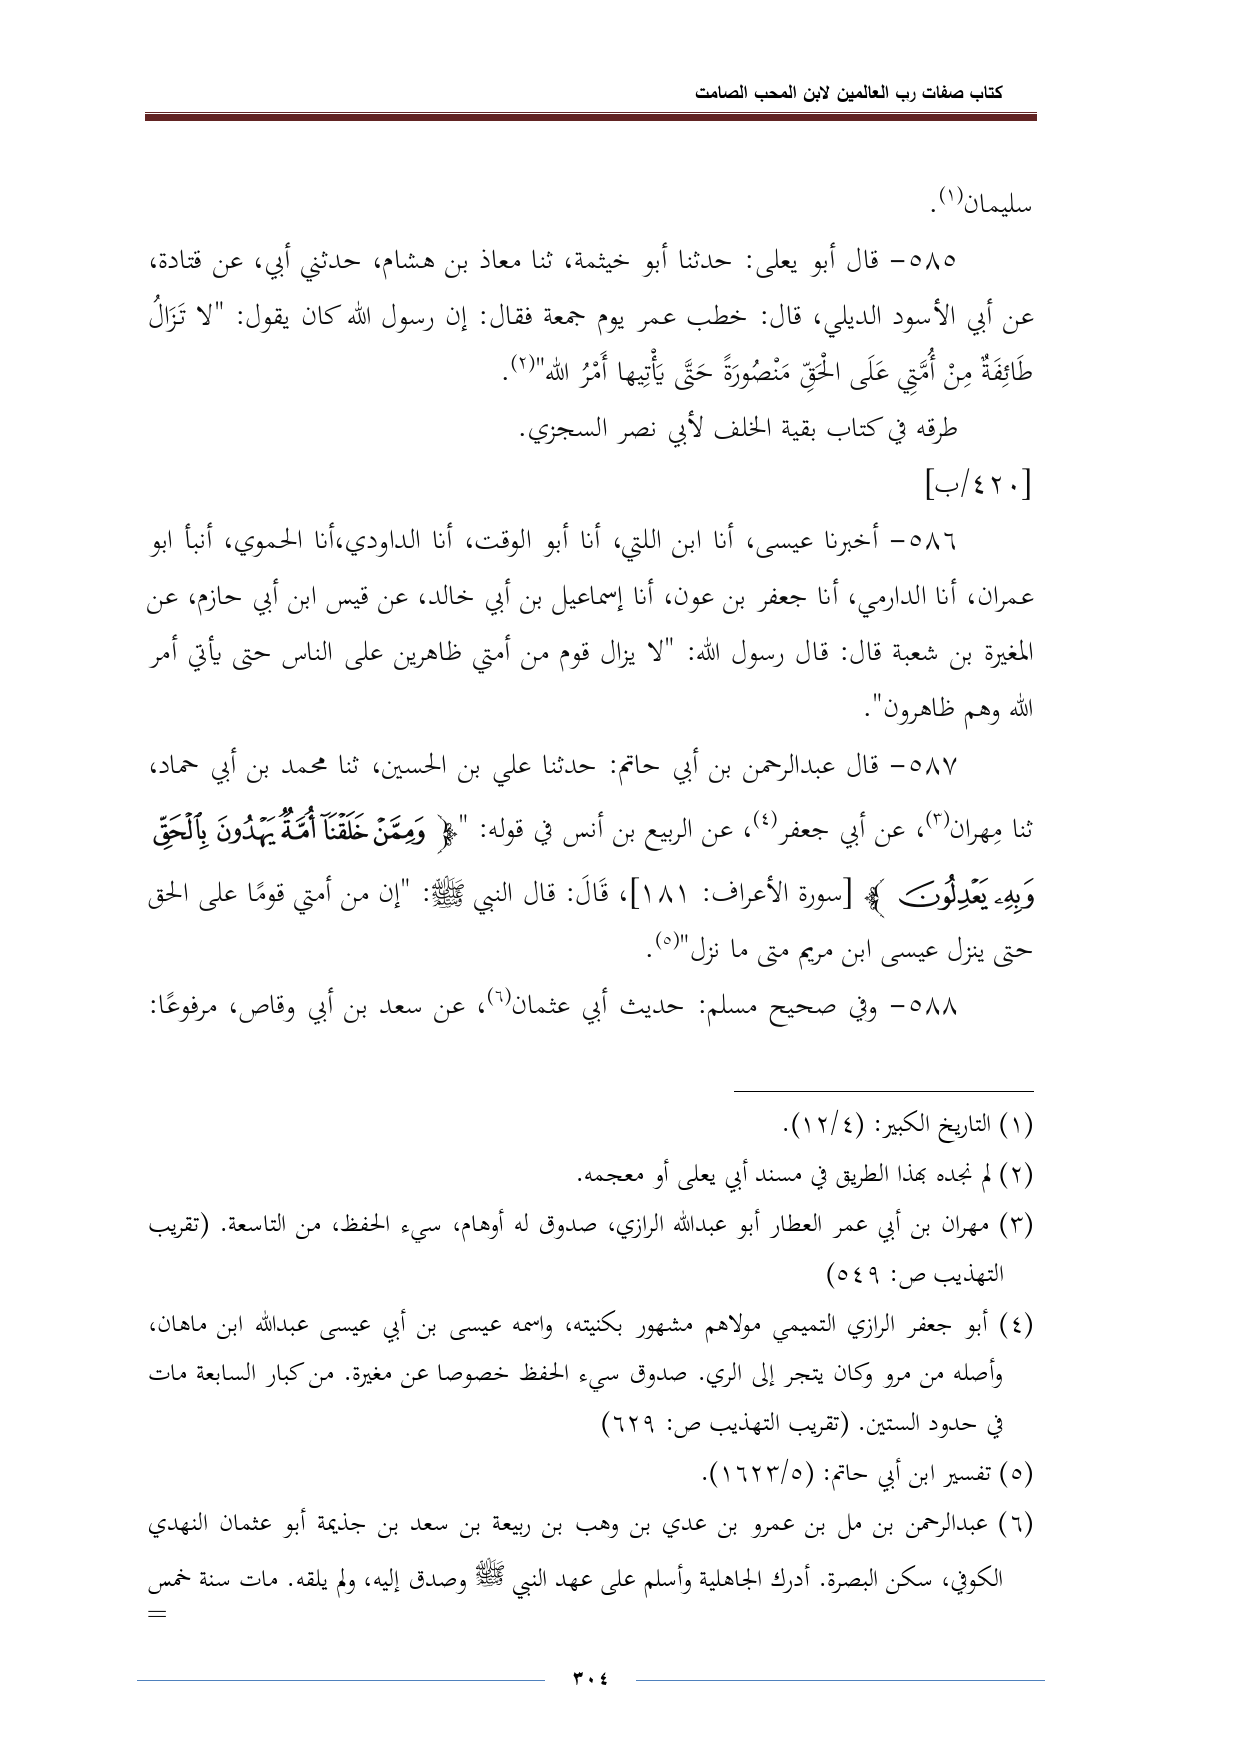 كتاب صفات رب العالمين لابن المحب الصامت
سليمان(١).
٥٨٥- قال أبو يعلى: حدثنا أبو خيثمة، ثنا معاذ بن هشام، حدثني أبي، عن قتادة،
عن أبي الأسود الديلي، قال: خطب عمر يوم جمعة فقال: إن رسول الله كان يقول: "لا تَزَالُ
طَائِفَةٌ مِنْ أُمَّتِي عَلَى الْحَقِّ مَنْصُورَةً حَتَّى يَأْتِيها أَمْرُ الله"(٢).
طرقه في كتاب بقية الخلف لأبي نصر السجزي.
[٤٢٠/ب]
٥٨٦- أخبرنا عيسى، أنا ابن اللتي، أنا أبو الوقت، أنا الداودي،أنا الحموي، أنبأ ابو
عمران، أنا الدارمي، أنا جعفر بن عون، أنا إسماعيل بن أبي خالد، عن قيس ابن أبي حازم، عن
المغيرة بن شعبة قال: قال رسول الله: "لا يزال قوم من أمتي ظاهرين على الناس حتى يأتي أمر
الله وهم ظاهرون".
٥٨٧- قال عبدالرحمن بن أبي حاتم: حدثنا علي بن الحسين، ثنا محمد بن أبي حماد،
ثنا مِهران(٣)، عن أبي جعفر(٤)، عن الربيع بن أنس في قوله: "﴿ وَمِمَّنْ خَلَقْنَآ أُمَّةٌ يَهْدُونَ بِٱلْحَقِّ
وَبِهِۦ يَعْدِلُونَ ﴾ [سورة الأعراف: ١٨١]، قَالَ: قال النبي ﷺ: "إن من أمتي قومًا على الحق
حتى ينزل عيسى ابن مريم متى ما نزل"(٥).
٥٨٨- وفي صحيح مسلم: حديث أبي عثمان(٦)، عن سعد بن أبي وقاص، مرفوعًا:
(١) التاريخ الكبير: (١٢/٤).
(٢) لم نجده بهذا الطريق في مسند أبي يعلى أو معجمه.
(٣) مهران بن أبي عمر العطار أبو عبدالله الرازي، صدوق له أوهام، سيء الحفظ، من التاسعة. (تقريب
التهذيب ص: ٥٤٩)
(٤) أبو جعفر الرازي التميمي مولاهم مشهور بكنيته، واسمه عيسى بن أبي عيسى عبدالله ابن ماهان،
وأصله من مرو وكان يتجر إلى الري. صدوق سيء الحفظ خصوصا عن مغيرة. من كبار السابعة مات
في حدود الستين. (تقريب التهذيب ص: ٦٢٩)
(٥) تفسير ابن أبي حاتم: (١٦٢٣/٥).
(٦) عبدالرحمن بن مل بن عمرو بن عدي بن وهب بن ربيعة بن سعد بن جذيمة أبو عثمان النهدي
الكوفي، سكن البصرة. أدرك الجاهلية وأسلم على عهد النبي ﷺ وصدق إليه، ولم يلقه. مات سنة خمس
=
٣٠٤